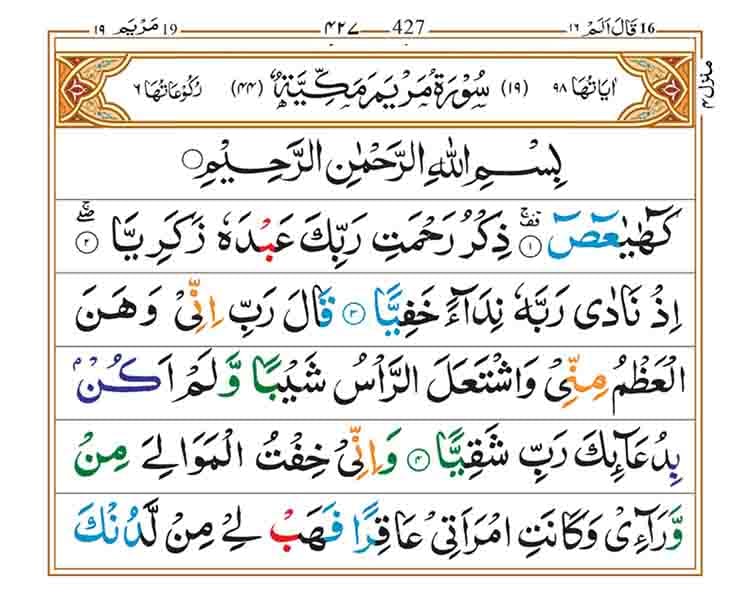 مَرْيَم 19 ١٩ 427 ٤٢٧ قَالَ اَلَمْ 16 ١٦
منزل ٤
اٰيَاتُهَا ٩٨ (١٩) سُوْرَةُ مَرْيَمَ مَكِّيَّةٌ (٤٤) رُكُوْعَاتُهَا ٦
بِسْمِ اللّٰهِ الرَّحْمٰنِ الرَّحِيْمِ ۝
كٓهٰيٰعٓصٓ ۝١ ذِكْرُ رَحْمَتِ رَبِّكَ عَبْدَهٗ زَكَرِيَّا ۝٢
اِذْ نَادٰى رَبَّهٗ نِدَآءً خَفِيًّا ۝٣ قَالَ رَبِّ اِنِّىْ وَهَنَ
الْعَظْمُ مِنِّىْ وَاشْتَعَلَ الرَّاْسُ شَيْبًا وَّلَمْ اَكُنْۢ
بِدُعَآئِكَ رَبِّ شَقِيًّا ۝٤ وَاِنِّىْ خِفْتُ الْمَوَالِىَ مِنْ
وَّرَآءِىْ وَكَانَتِ امْرَاَتِىْ عَاقِرًا فَهَبْ لِىْ مِنْ لَّدُنْكَ